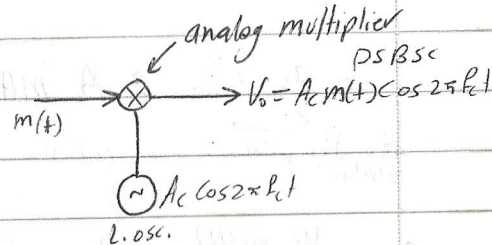 analog multiplier
DSBSC
V₀ = Ac m(t) Cos 2π fc t
m(t)
Ac Cos 2π fc t
l. osc.